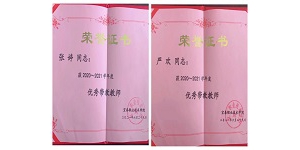 荣誉证书
张婷 同志:
获2020-2021学年度
优秀带教教师
荣誉证书
严欢 同志:
获2020-2021学年度
优秀带教教师